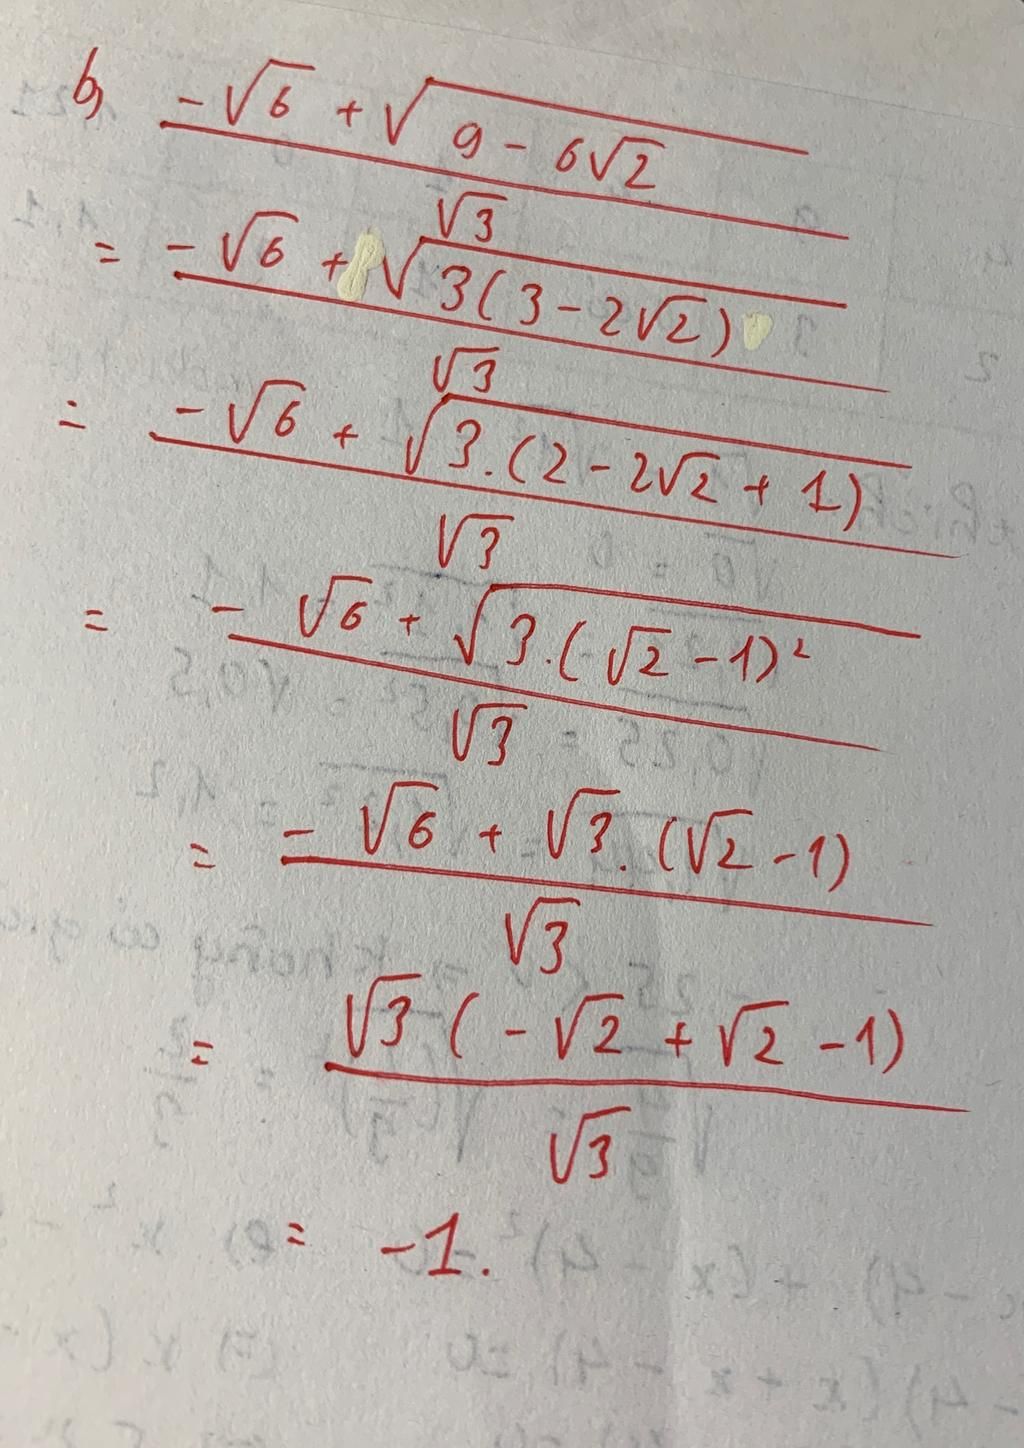 b, (-√6 + √(9 - 6√2)) / √3
= (-√6 + √(3(3 - 2√2))) / √3
= (-√6 + √(3.(2 - 2√2 + 1))) / √3
= (-√6 + √(3.(√2 - 1)²)) / √3
= (-√6 + √3.(√2 - 1)) / √3
= √3(-√2 + √2 - 1) / √3
= -1.